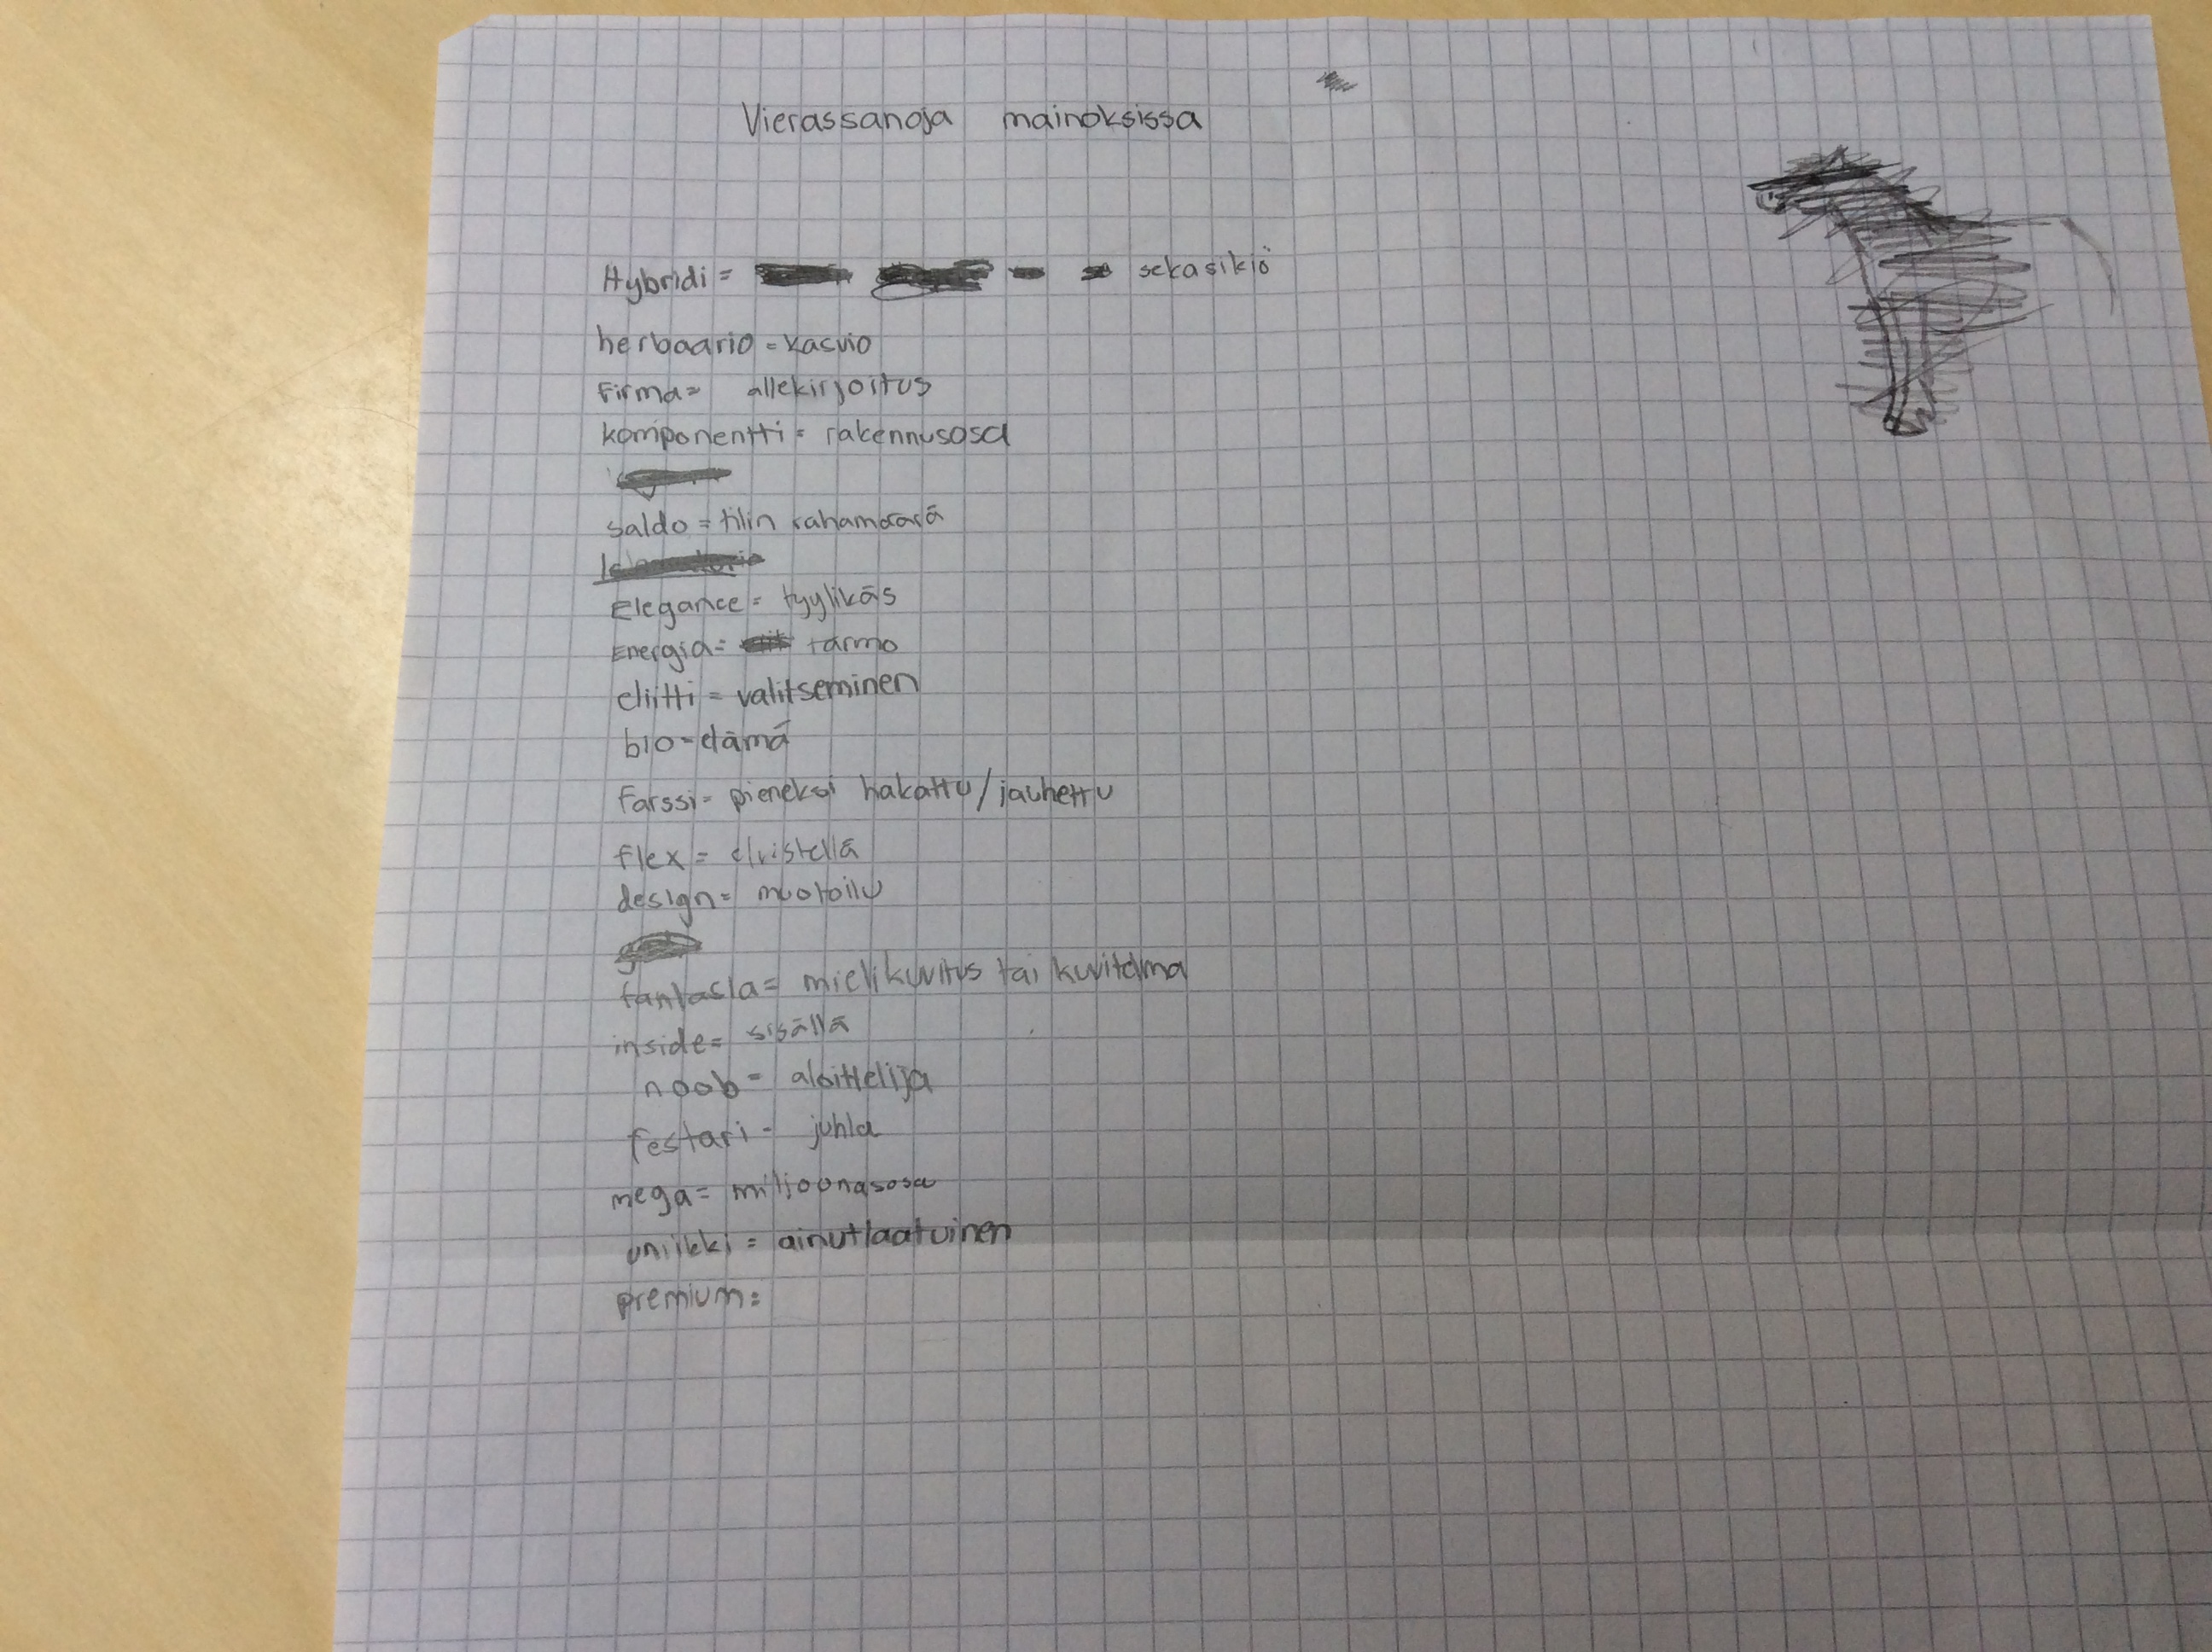 Vierassanoja mainoksissa
Hybridi = sekasikiö
herbaario = kasvio
Firma = allekirjoitus
komponentti = rakennusosa
saldo = tilin rahamäärä
Elegance = tyylikäs
Energia = tarmo
eliitti = valitseminen
bio = elämä
Farssi = pieneksi hakattu/jauhettu
flex = elvistellä
design = muotoilu
fantasia = mielikuvitus tai kuvitelma
inside = sisällä
noob = aloittelija
festari - juhla
mega = miljoonasosa
uniikki = ainutlaatuinen
premium =